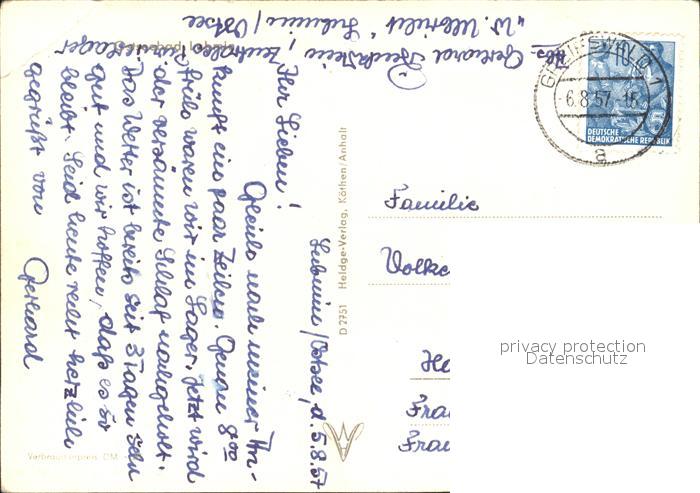 Abs. Gerhard
"W. Ulbricht" Lubmin/Ostsee
Lubmin/Ostsee, d. 5.8.57
Ihr Lieben!
Gleich nach meiner An-
kunft ein paar Zeilen. Genau 8.00
Uhr waren wir im Lager. Jetzt wird
der versäumte Schlaf nachgeholt.
Das Wetter ist bereits seit 3 Tagen sehr
gut und wir hoffen, daß es so
bleibt. Seid heute recht herzlich
gegrüßt von
Gerhard
D 2751 Heldge-Verlag, Köthen/Anhalt
GREIFSWALD 1
-6.8.57.-15
a
10
DEUTSCHE
DEMOKRATISCHE REPUBLIK
Familie
Volke
He
Fra
Frau
privacy protection
Datenschutz
Verbraucherpreis DM